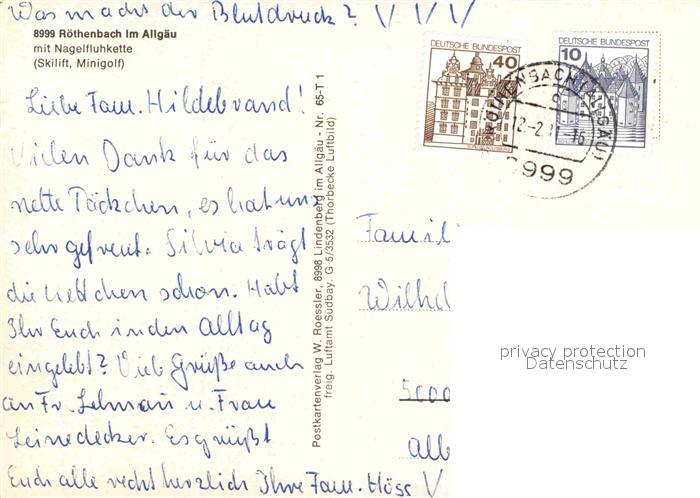 Was macht der Blutdruck?
8999 Röthenbach im Allgäu
mit Nagelfluhkette
(Skilift, Minigolf)
Liebe Fam. Hildebrand!
Vielen Dank für das
nette Päckchen, es hat uns
sehr gefreut. Silvia trägt
die Kettchen schon. Habt
Ihr Euch in den Alltag
eingelebt? Viele Grüße auch
an Fr. Lehman u. Frau
Leinedecker. Es grüßt
Euch alle recht herzlich Ihre Fam. Höss
Postkartenverlag W. Roessler, 8998 Lindenberg im Allgäu - Nr. 65-T 1
freig. Luftamt Südbay. G 5/3532 (Thorbecke Luftbild)
DEUTSCHE BUNDESPOST
40
10
DEUTSCHE BUNDESPOST
RÖTHENBACH (ALLGÄU)
8999
Famili
Wilhel
5000
privacy protection
Datenschutz